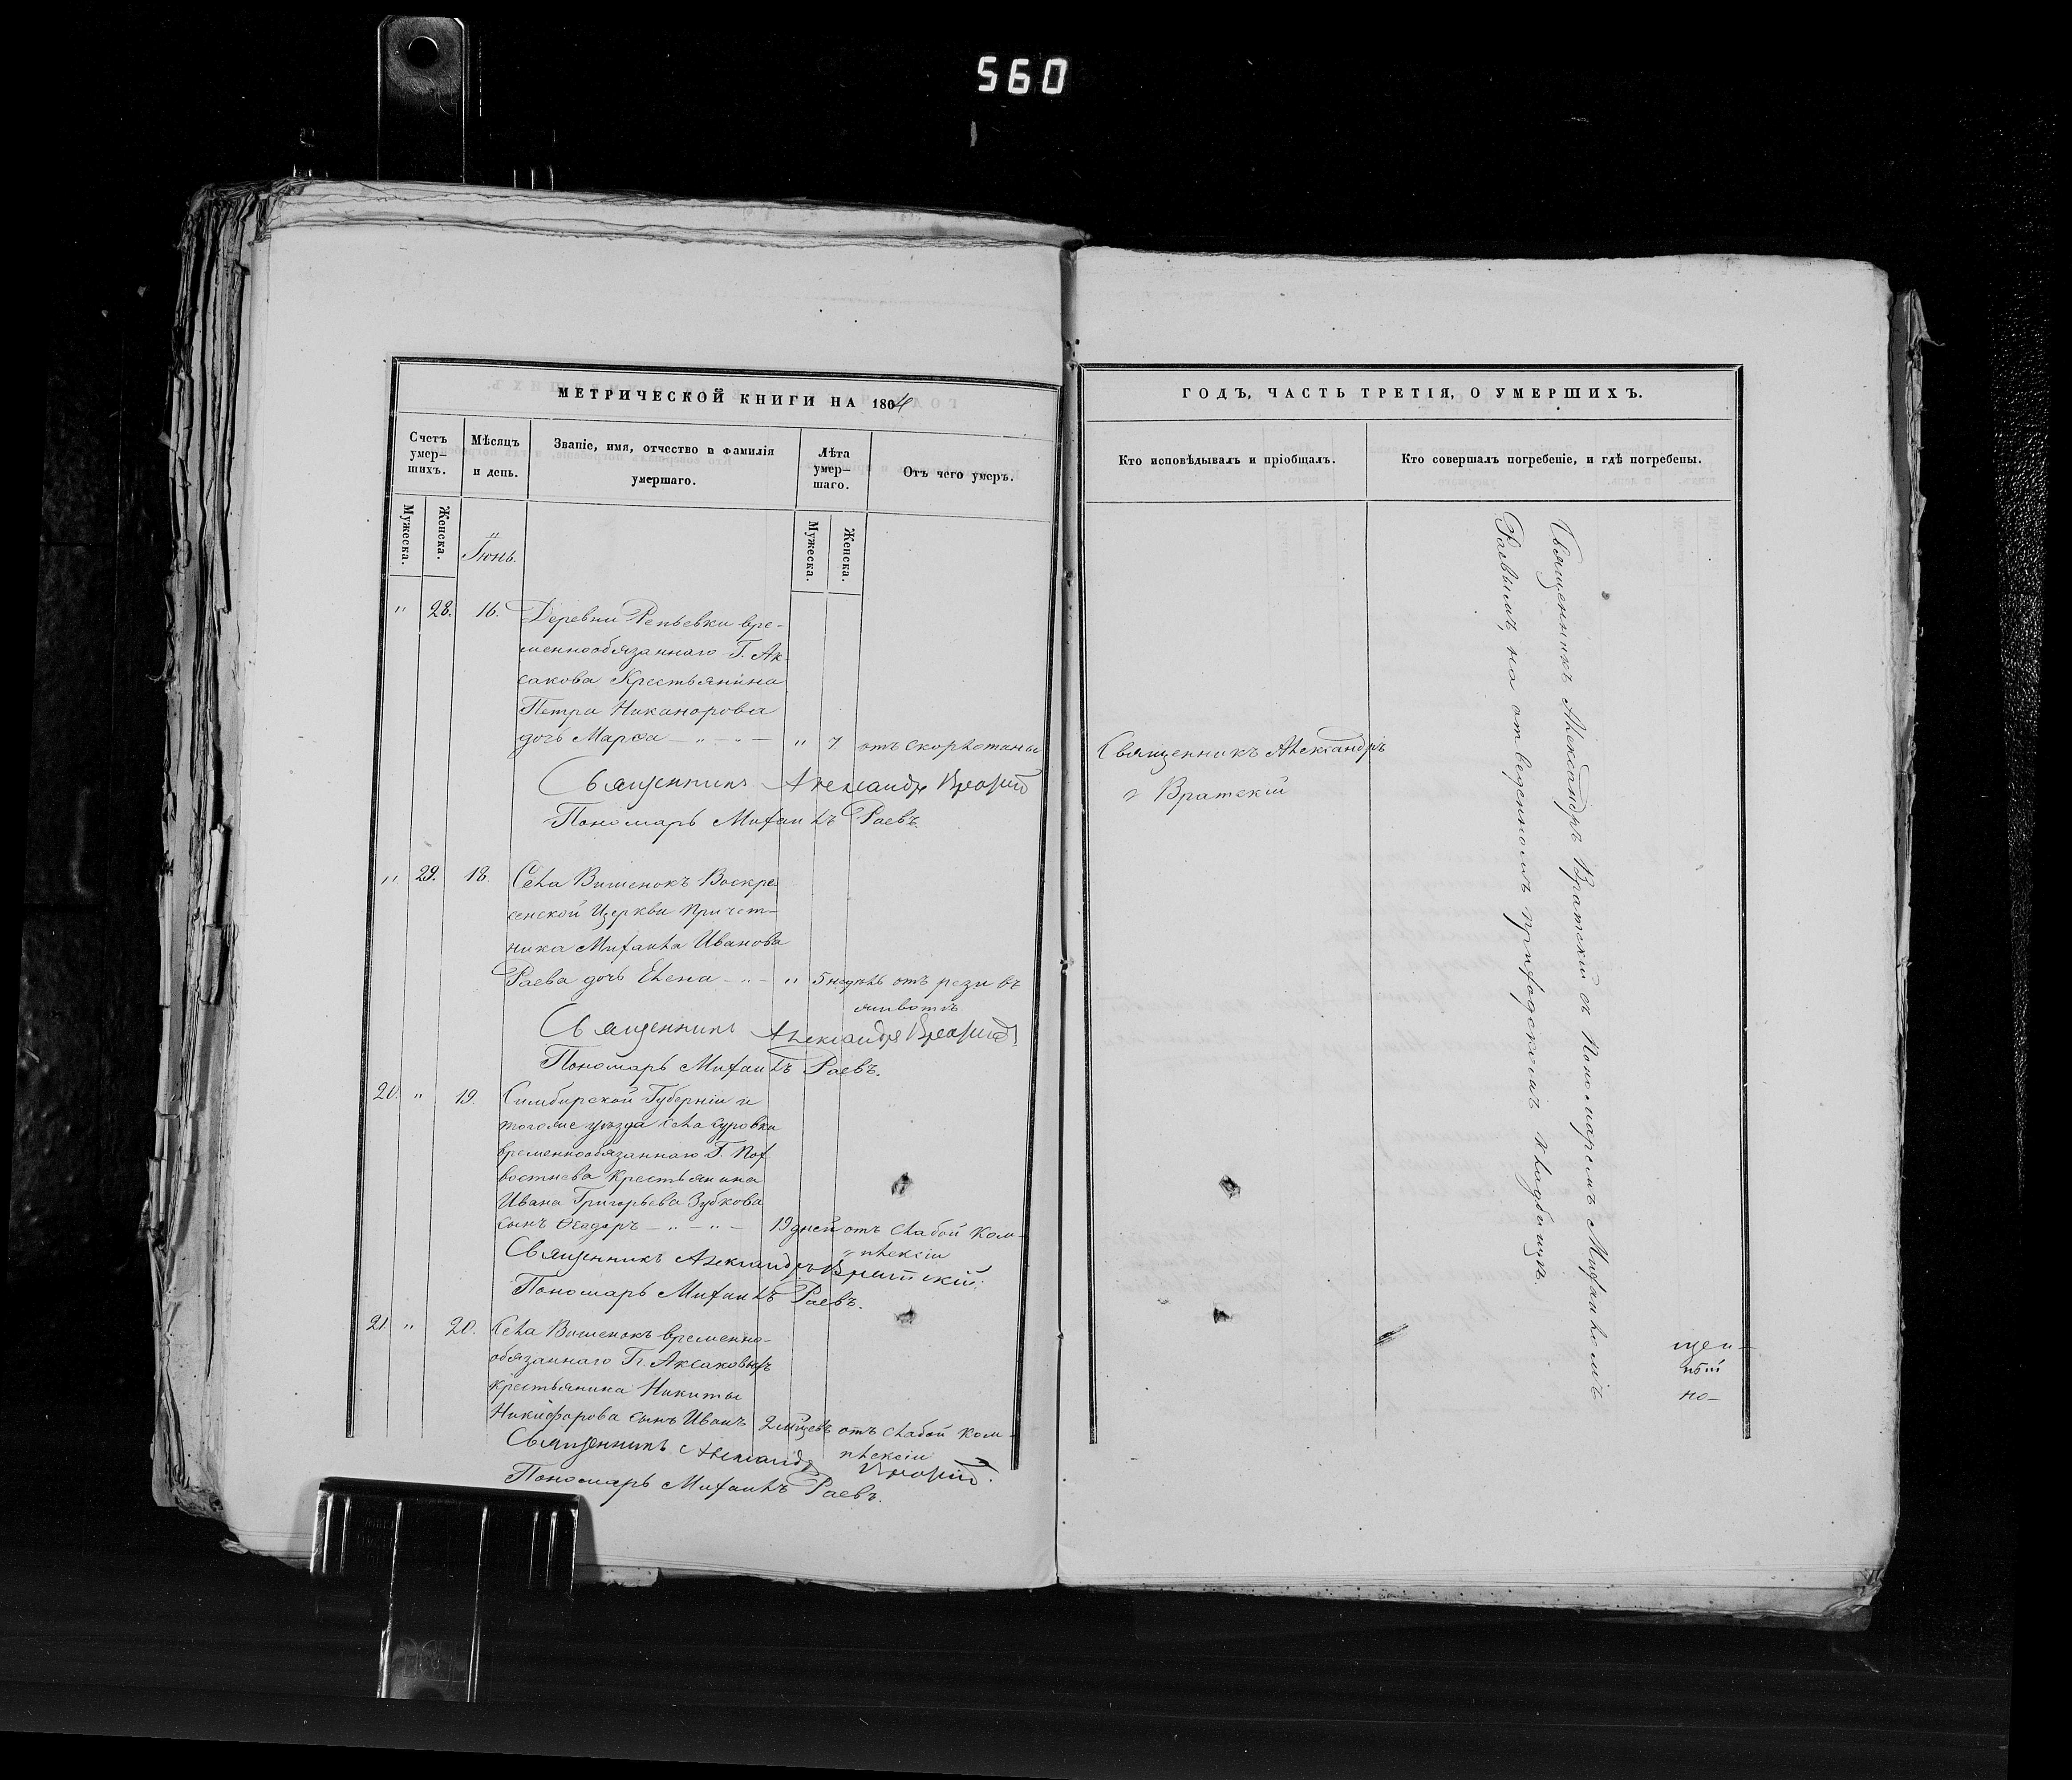 560
МЕТРИЧЕСКОЙ КНИГИ НА 1864
Счетъ умер-шихъ.
Мѣсяцъ и день.
Званіе, имя, отчество и фамилія умершаго.
Лѣта умер-шаго.
Отъ чего умеръ.
Мужеска.
Женска.
Мужеска.
Женска.
Іюнь.
" 28. 16. Деревни Репьевки вре-
меннообязаннаго Г. Ак-
сакова Крестьянина
Петра Никанорова
дочь Марѳа — " — " — " 7 отъ скорлотины
Священникъ Александръ Вратскій
Пономарь Михаилъ Раевъ.
" 29. 18. Села Вишенокъ Воскре
сенской Церкви Причет-
ника Михаила Иванова
Раева дочь Елена — " — " 5 недѣль отъ рези въ
животѣ
Священникъ Александръ Вратскій
Пономарь Михаилъ Раевъ.
20. " 19. Симбирской Губерніи и
тогоже уѣзда села Суровки
временнообязаннаго Г. Пох
востнева крестьянина
Ивана Григорьева Зубкова
сынъ Ѳеодоръ — " — " — 19 дней отъ слабой ком-
плексіи
Священникъ Александръ Вратскій.
Пономарь Михаилъ Раевъ.
21. " 20. Села Вишенокъ временно-
обязаннаго Гг. Аксаковыхъ
крестьянина Никиты
Никифорова сынъ Иванъ 2 мѣцевъ отъ слабой ком-
плексіи
Священникъ Александръ Вратскій.
Пономарь Михаилъ Раевъ.
ГОДЪ, ЧАСТЬ ТРЕТІЯ, О УМЕРШИХЪ.
Кто исповѣдывалъ и пріобщалъ.
Кто совершалъ погребеніе, и гдѣ погребены.
Священникъ Александръ
Вратскій
Священникъ Александръ Вратскій съ Пономаремъ Михаиломъ
Раевымъ, на отведенномъ приходскомъ кладбищѣ.
щен-
ный
но-